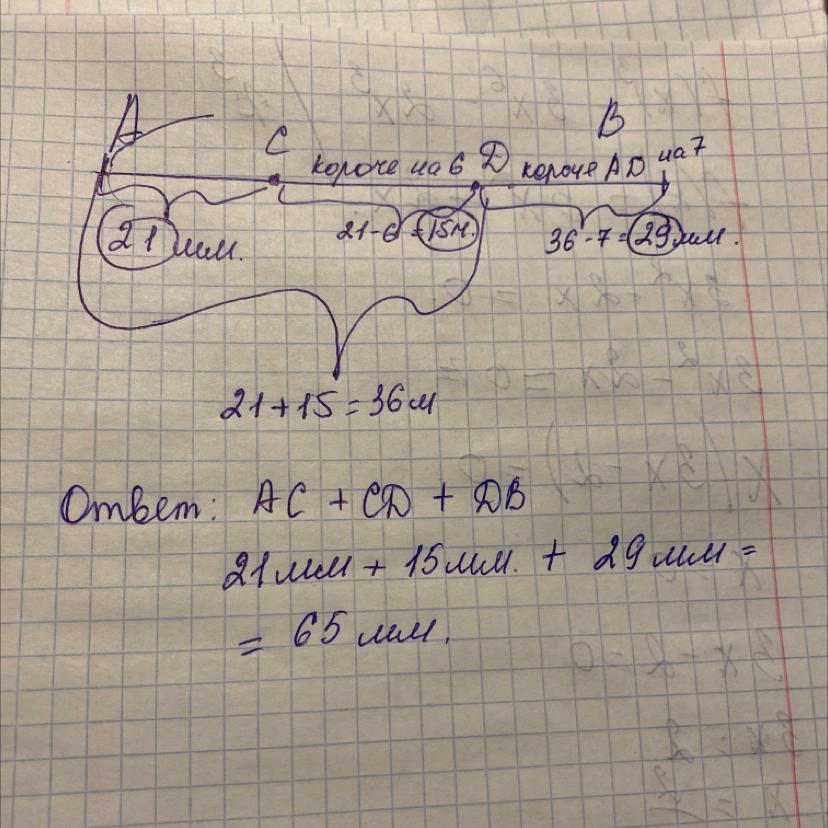 A
C
B
короче на 6 D короче AD на 7
21 мм.
21-6=15м.
36-7=29мм.
21+15=36м
Ответ: AC + CD + DB
21мм + 15мм. + 29мм=
= 65мм.